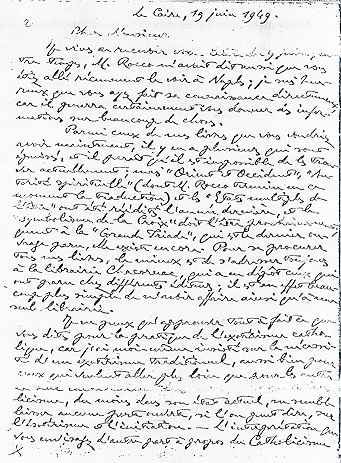 Le Caire, 19 juin 1949.
2
Monsieur,
Je viens de recevoir votre
très temps, M. Rocco m'avait dit aussi que vous
allé récemment le voir à Naples; je suis heu-
reux que vous ayez fait sa connaissance directement,
car il pourra certainement vous donner des infor-
mations sur beaucoup de choses.
Parmi ceux de mes livres que vous voudriez
avoir maintenant, il y en a plusieurs qui sont
épuisés, et il paraît qu'il est impossible de les trou-
ver actuellement; mais "Orient et Occident", "Au-
torité spirituelle" (dont M. Rocco termine en ce
moment la traduction) et les "États multiples de
l'Être" ont été réédités l'année dernière, et le
"Symbolisme de la Croix" doit l'être prochainement;
quant à la "Grande Triade", qui est le dernier ou-
vrage paru, elle existe encore. Pour se procurer
tous mes livres, le mieux est de s'adresser toujours
à la librairie Chacornac, qui a en dépôt ceux qui
ont paru chez différents éditeurs; il est en effet beau-
coup plus simple de n'avoir affaire ainsi qu'à une
seule librairie.
Je ne peux qu'approuver tout à fait ce que
vous dites pour la pratique de l'exotérisme catho-
lique, car j'ai moi-même insisté sur la nécessi-
té d'un exotérisme traditionnel, aussi bien pour
ceux qui veulent aller plus loin que pour les autres
licisme, du moins dans son état actuel, ne semble
laisser aucune porte ouverte, si l'on peut dire, sur
l'ésotérisme et l'initiation. — L'interprétation que
vous envisagez d'autre part à propos du Catholicisme